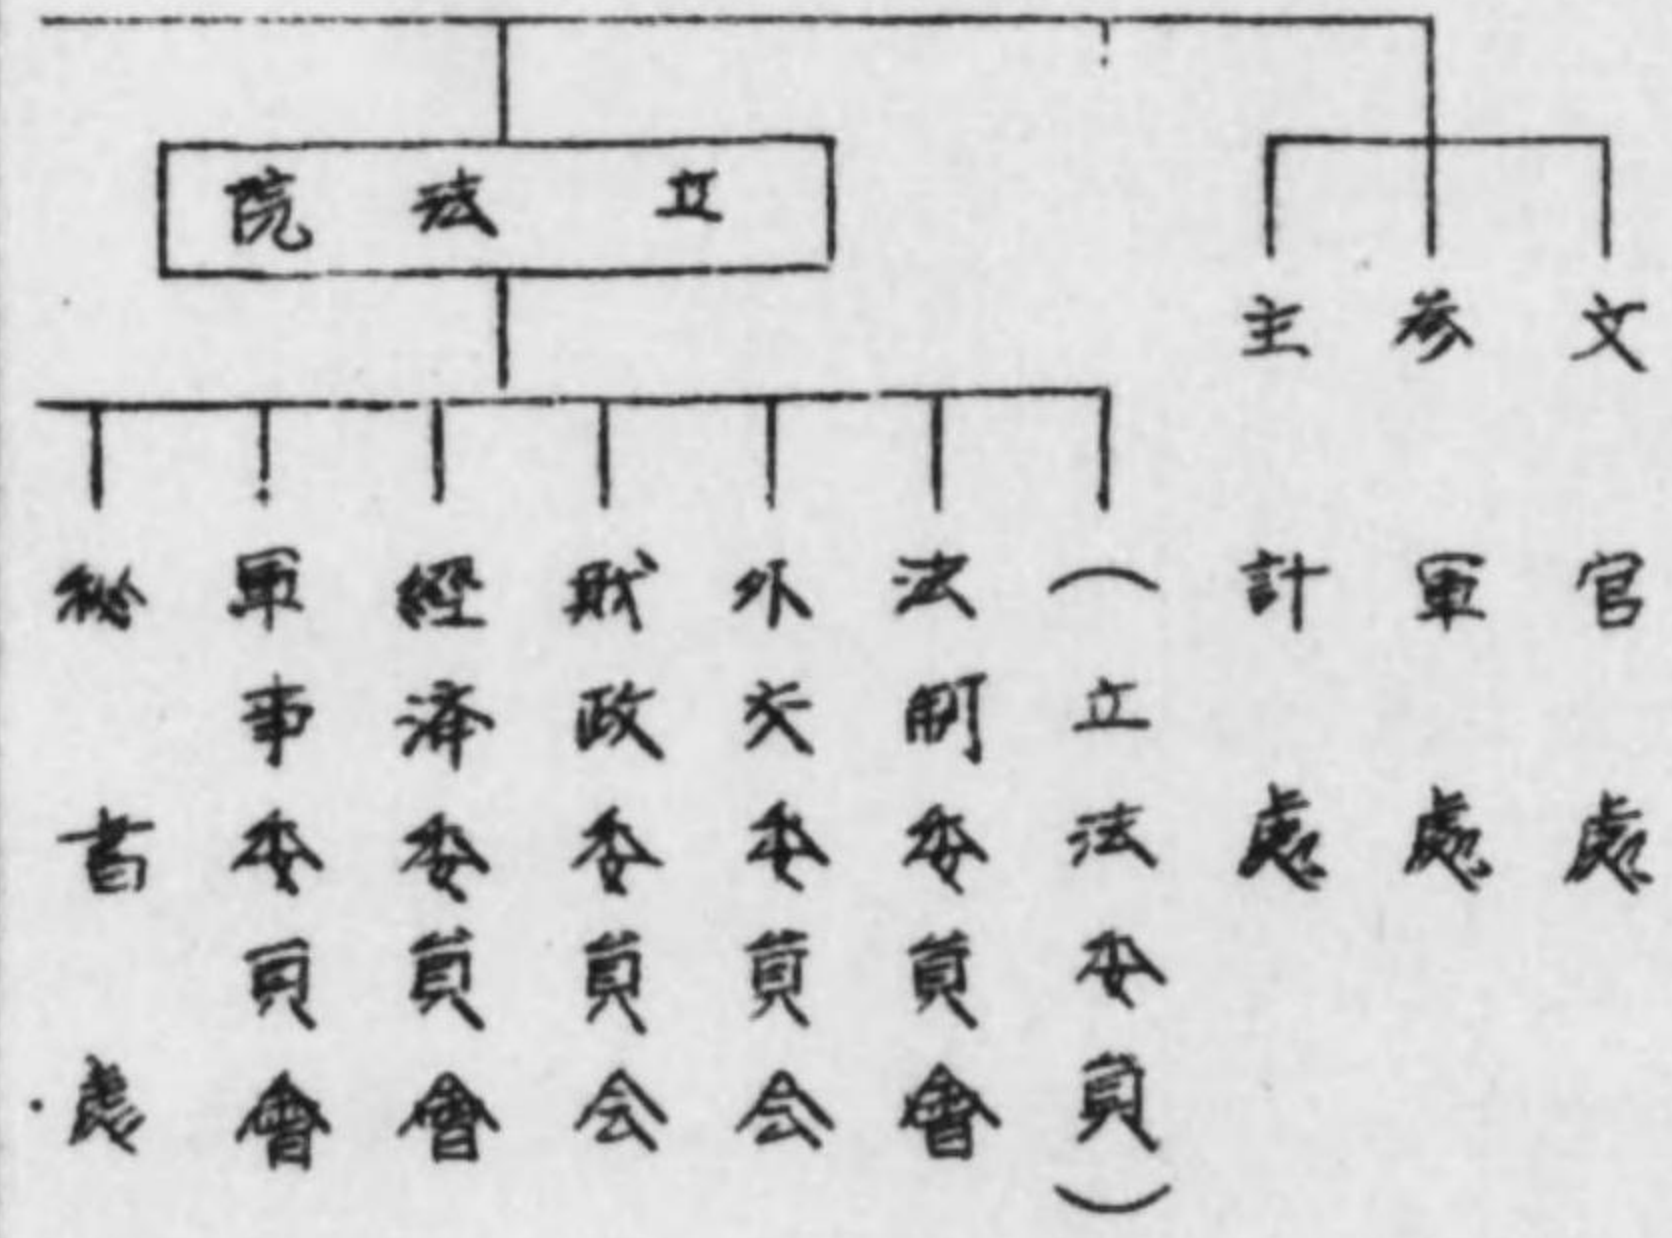 文官處
參軍處
主計處
立法院
（立法委員）
法制委員會
外交委員会
財政委員会
經済委員會
軍事委員會
秘書處